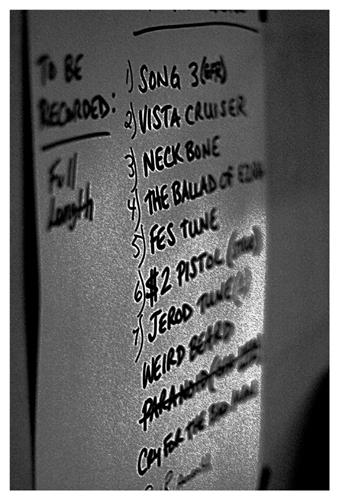 TO BE
RECORDED:
Full
Length
1) SONG 3 (EFR)
2) VISTA CRUISER
3) NECKBONE
4) THE BALLAD OF
5) FES TUNE
6) $2 PISTOL
7) JEROD TUNE
WEIRD BEARD
PARANOID
CRY FOR THE BAD